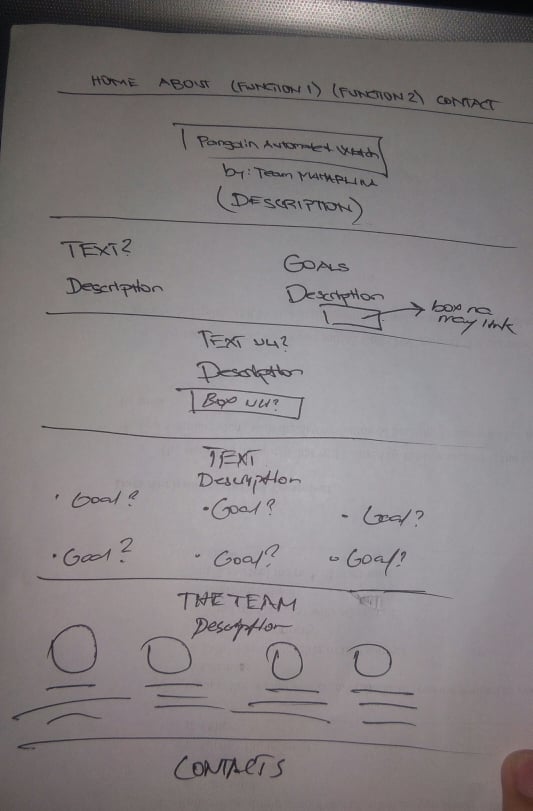 HOME ABOUT (FUNCTION 1) (FUNCTION 2) CONTACT
Pangolin Automated Watch
by: Team
(DESCRIPTION)
TEXT?
Description
GOALS
Description
box na
may link
TEXT ULI?
Description
Box ULI?
TEXT
Description
• Goal?
• Goal?
• Goal?
• Goal?
• Goal?
• Goal?
THE TEAM
Description
CONTACTS